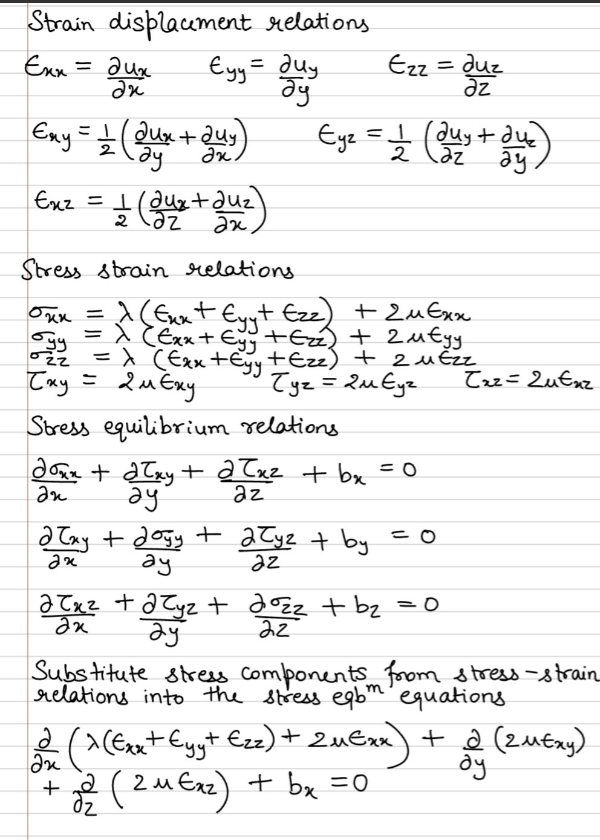 Strain displacement relations
ϵxx = ∂ux/∂x ϵyy = ∂uy/∂y ϵzz = ∂uz/∂z
ϵxy = 1/2 (∂ux/∂y + ∂uy/∂x) ϵyz = 1/2 (∂uy/∂z + ∂uz/∂y)
ϵxz = 1/2 (∂ux/∂z + ∂uz/∂x)
Stress strain relations
σxx = λ (ϵxx + ϵyy + ϵzz) + 2μϵxx
σyy = λ (ϵxx + ϵyy + ϵzz) + 2μϵyy
σzz = λ (ϵxx + ϵyy + ϵzz) + 2μϵzz
τxy = 2μϵxy τyz = 2μϵyz τxz = 2μϵxz
Stress equilibrium relations
∂σxx/∂x + ∂τxy/∂y + ∂τxz/∂z + bx = 0
∂τxy/∂x + ∂σyy/∂y + ∂τyz/∂z + by = 0
∂τxz/∂x + ∂τyz/∂y + ∂σzz/∂z + bz = 0
Substitute stress components from stress-strain
relations into the stress eqbm equations
∂/∂x (λ(ϵxx + ϵyy + ϵzz) + 2μϵxx) + ∂/∂y (2μϵxy)
+ ∂/∂z (2μϵxz) + bx = 0